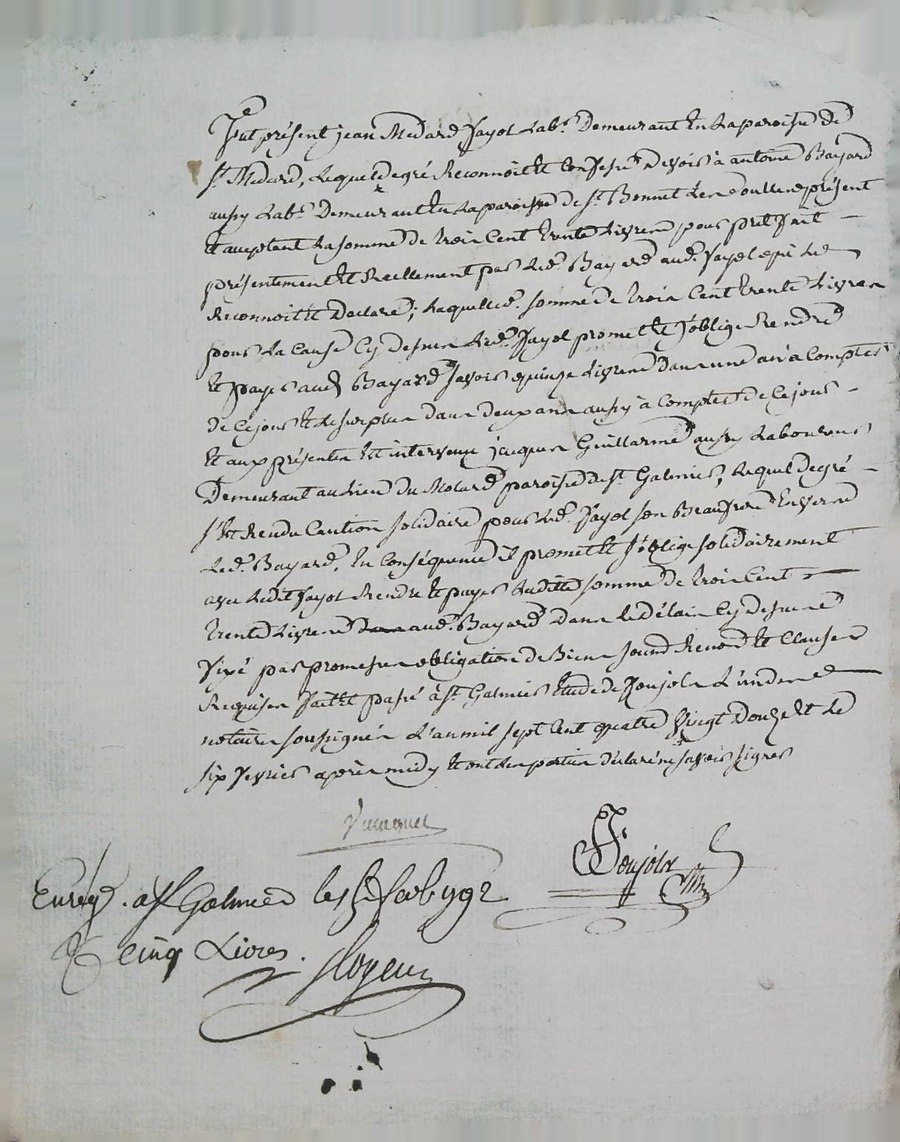 Fut présent jean Medard Fayol Labr. Demeurant En La paroisse de
St. Medard, Lequel de gré Reconnoit et Confesse Devoir à antoine Bayard
aussy Labr. Demeurant En La paroisse de St. Bonnet Les oulles présent
et acceptant La somme de Trois Cent trente Livres pour pret fait
présentement et Réellement par Led. Bayard aud. Fayol qui Le
Reconnoit et Declare; Laquelle d. somme de Trois Cent trente Livres
pour La Cause Cy dessus Led. Fayol promet et s'oblige Rendre
et payer aud. Bayard savoir quinze Livres dans une an à Compter
de Ce jour et Le surplus dans deux ans aussy à Compter de Ce jour
Et aux présentes est intervenu jacques Guillarme aussy Laboureur
Demeurant au Lieu du Molard paroisse de St. Galmier, Lequel de gré
s'est Rendu Caution solidaire pour Led. Fayol son Beaufrere Envers
Led. Bayard, En Conséquence il promet et s'oblige solidairement
avec Ledit Fayol Rendre et payer Ladite somme de Trois Cent
trente Livres aud. Bayard Dans Le délain Cy dessus
fixé par promesse obligation de Biens soumd. Renond. et Clauses
Requises fait et passé à St. Galmier Etude de Joujols L'un des
notaires soussignés L'an mil sept Cent quatre vingt Douze et Le
six fevrier après midy et ont Les parties déclaré ne savoir signer
Joujols
Enreg. a St Galmier les fevb 1792
R cinq Livres.